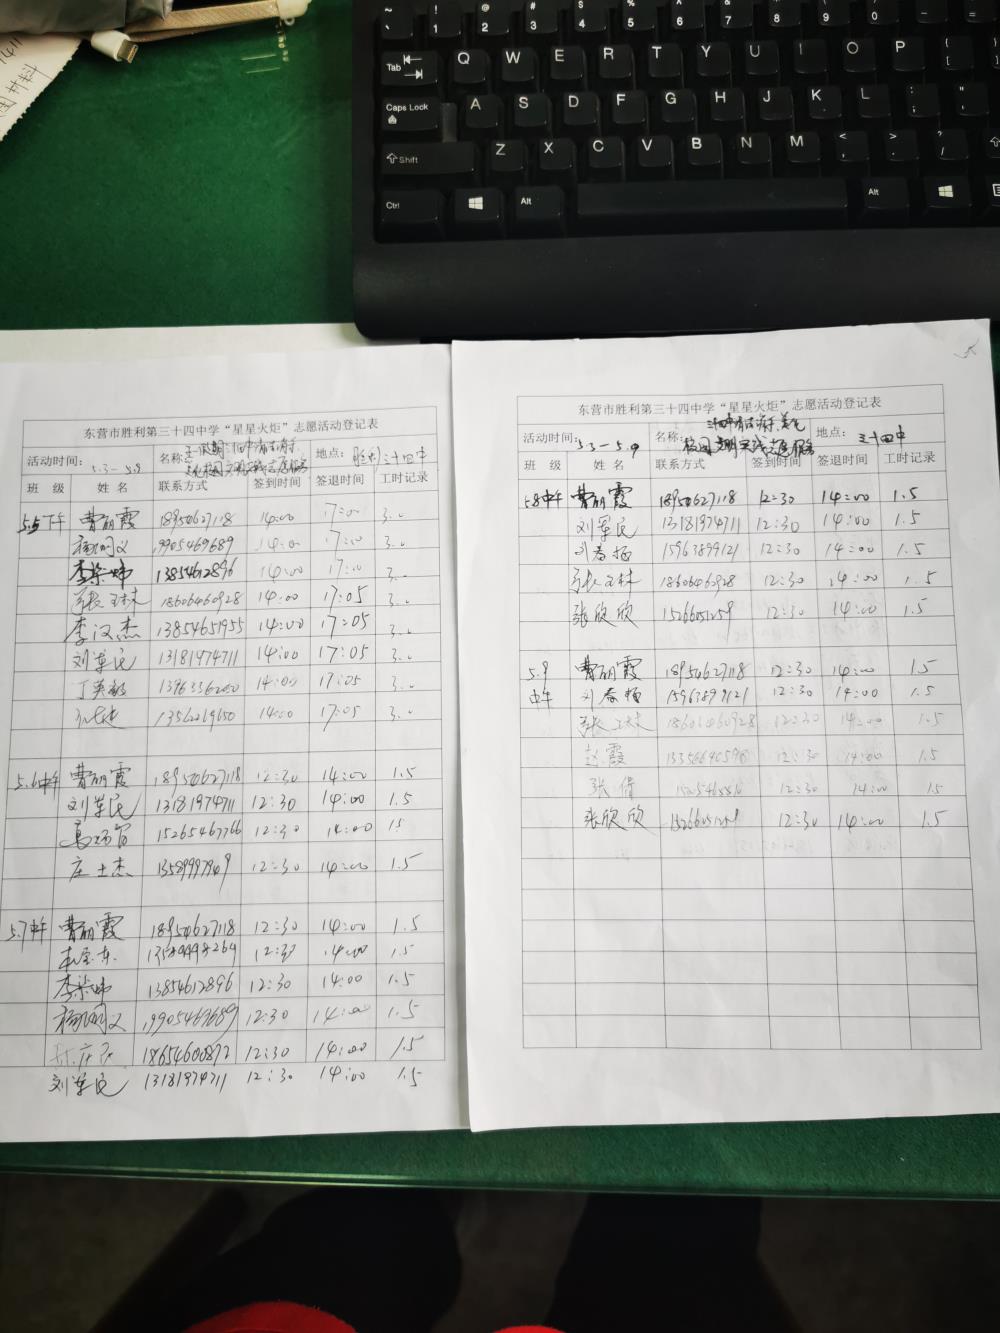 ~ ` ! 1 @ 2 # 3 $ 4 % 5 ^ 6 & 7 * 8 ( 9 ) 0 _ -
Tab Q W E R T Y U I O P { [
Caps Lock A S D F G H J K L : ; " '
Shift Z X C V B N M < , > . ? /
Ctrl Alt Alt
东营市胜利第三十四中学“星星火炬”志愿活动登记表
活动时间： 5.3-5.9 名称： 地点： 胜利三十四中
班 级 姓 名 联系方式 签到时间 签退时间 工时记录
5.5下午 曹丽霞 18950627118 14:00 17:00 3.0
19905469689 14:00 17:00 3.0
13854612896 14:00 17:00 3.0
张玉林 18606460928 14:00 17:05 3.0
李汉杰 13854651955 14:00 17:05 3.0
刘军民 13181974711 14:00 17:05 3.0
14:00 17:05 3.0
14:00 17:05 3.0
5.6中午 曹丽霞 18950627118 12:30 14:00 1.5
刘军民 13181974711 12:30 14:00 1.5
15265467766 12:30 14:00 1.5
庄土杰 12:30 14:00 1.5
5.7中午 曹丽霞 18950627118 12:30 14:00 1.5
12:30 14:00 1.5
13854612896 12:30 14:00 1.5
19905469689 12:30 14:00 1.5
18654600872 12:30 14:00 1.5
刘军民 13181974711 12:30 14:00 1.5
东营市胜利第三十四中学“星星火炬”志愿活动登记表
活动时间： 5.3-5.9 名称： 地点： 三十四中
班 级 姓 名 联系方式 签到时间 签退时间 工时记录
5.8中午 曹丽霞 18950627118 12:30 14:00 1.5
刘军民 13181974711 12:30 14:00 1.5
刘春梅 15963899121 12:30 14:00 1.5
张玉林 18606460928 12:30 14:00 1.5
张欣欣 15266051259 12:30 14:00 1.5
5.9 曹丽霞 18950627118 12:30 14:00 1.5
中午 刘春梅 15963899121 12:30 14:00 1.5
张玉林 18606460928 12:30 14:00 1.5
赵霞 13356690590 12:30 14:00 1.5
张倩 12:30 14:00 1.5
张欣欣 15266051259 12:30 14:00 1.5